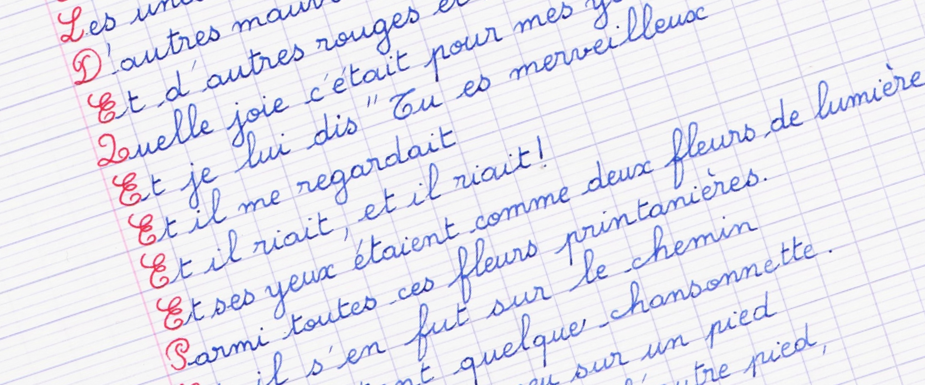 Les
D'autres
Et d'autres rouges
Quelle joie c'était pour mes
Et je lui dis " Tu es merveilleux
Et il me regardait
Et il riait, et il riait!
Et ses yeux étaient comme deux fleurs de lumière
Parmi toutes ces fleurs printanières.
il s'en fut sur le chemin
quelque chansonnette.
sur un pied
pied,